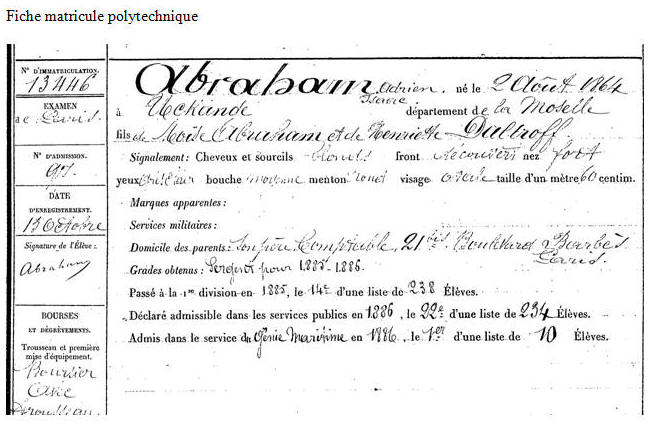 Fiche matricule polytechnique
N° D'IMMATRICULATION.
13446
EXAMEN
de Paris.
N° D'ADMISSION.
DATE
D'ENREGISTREMENT.
13 Octobre
Signature de l'Élève:
Abraham
BOURSES
ET DÉGRÈVEMENTS.
Trousseau et première
mise d'équipement.
Boursier
Avec
Trousseau
Abraham Adrien Isaac né le 2 Août 1864
à Uckange département de la Moselle
fils de Moïse Abraham et de Henriette Daltroff
Signalement: Cheveux et sourcils blonds front découvert nez fort
yeux gris clair bouche moyenne menton rond visage ovale taille d'un mètre 60 centim.
Marques apparentes:
Services militaires:
Domicile des parents: Son père Comptable, 21 bis Boulevard Barbès
Paris.
Grades obtenus: Sergent pour 1885-1886.
Passé à la 1re division en 1885, le 14e d'une liste de 238 Élèves.
Déclaré admissible dans les services publics en 1886, le 22e d'une liste de 234 Élèves.
Admis dans le service du Génie Maritime en 1886, le 1er d'une liste de 10 Élèves.